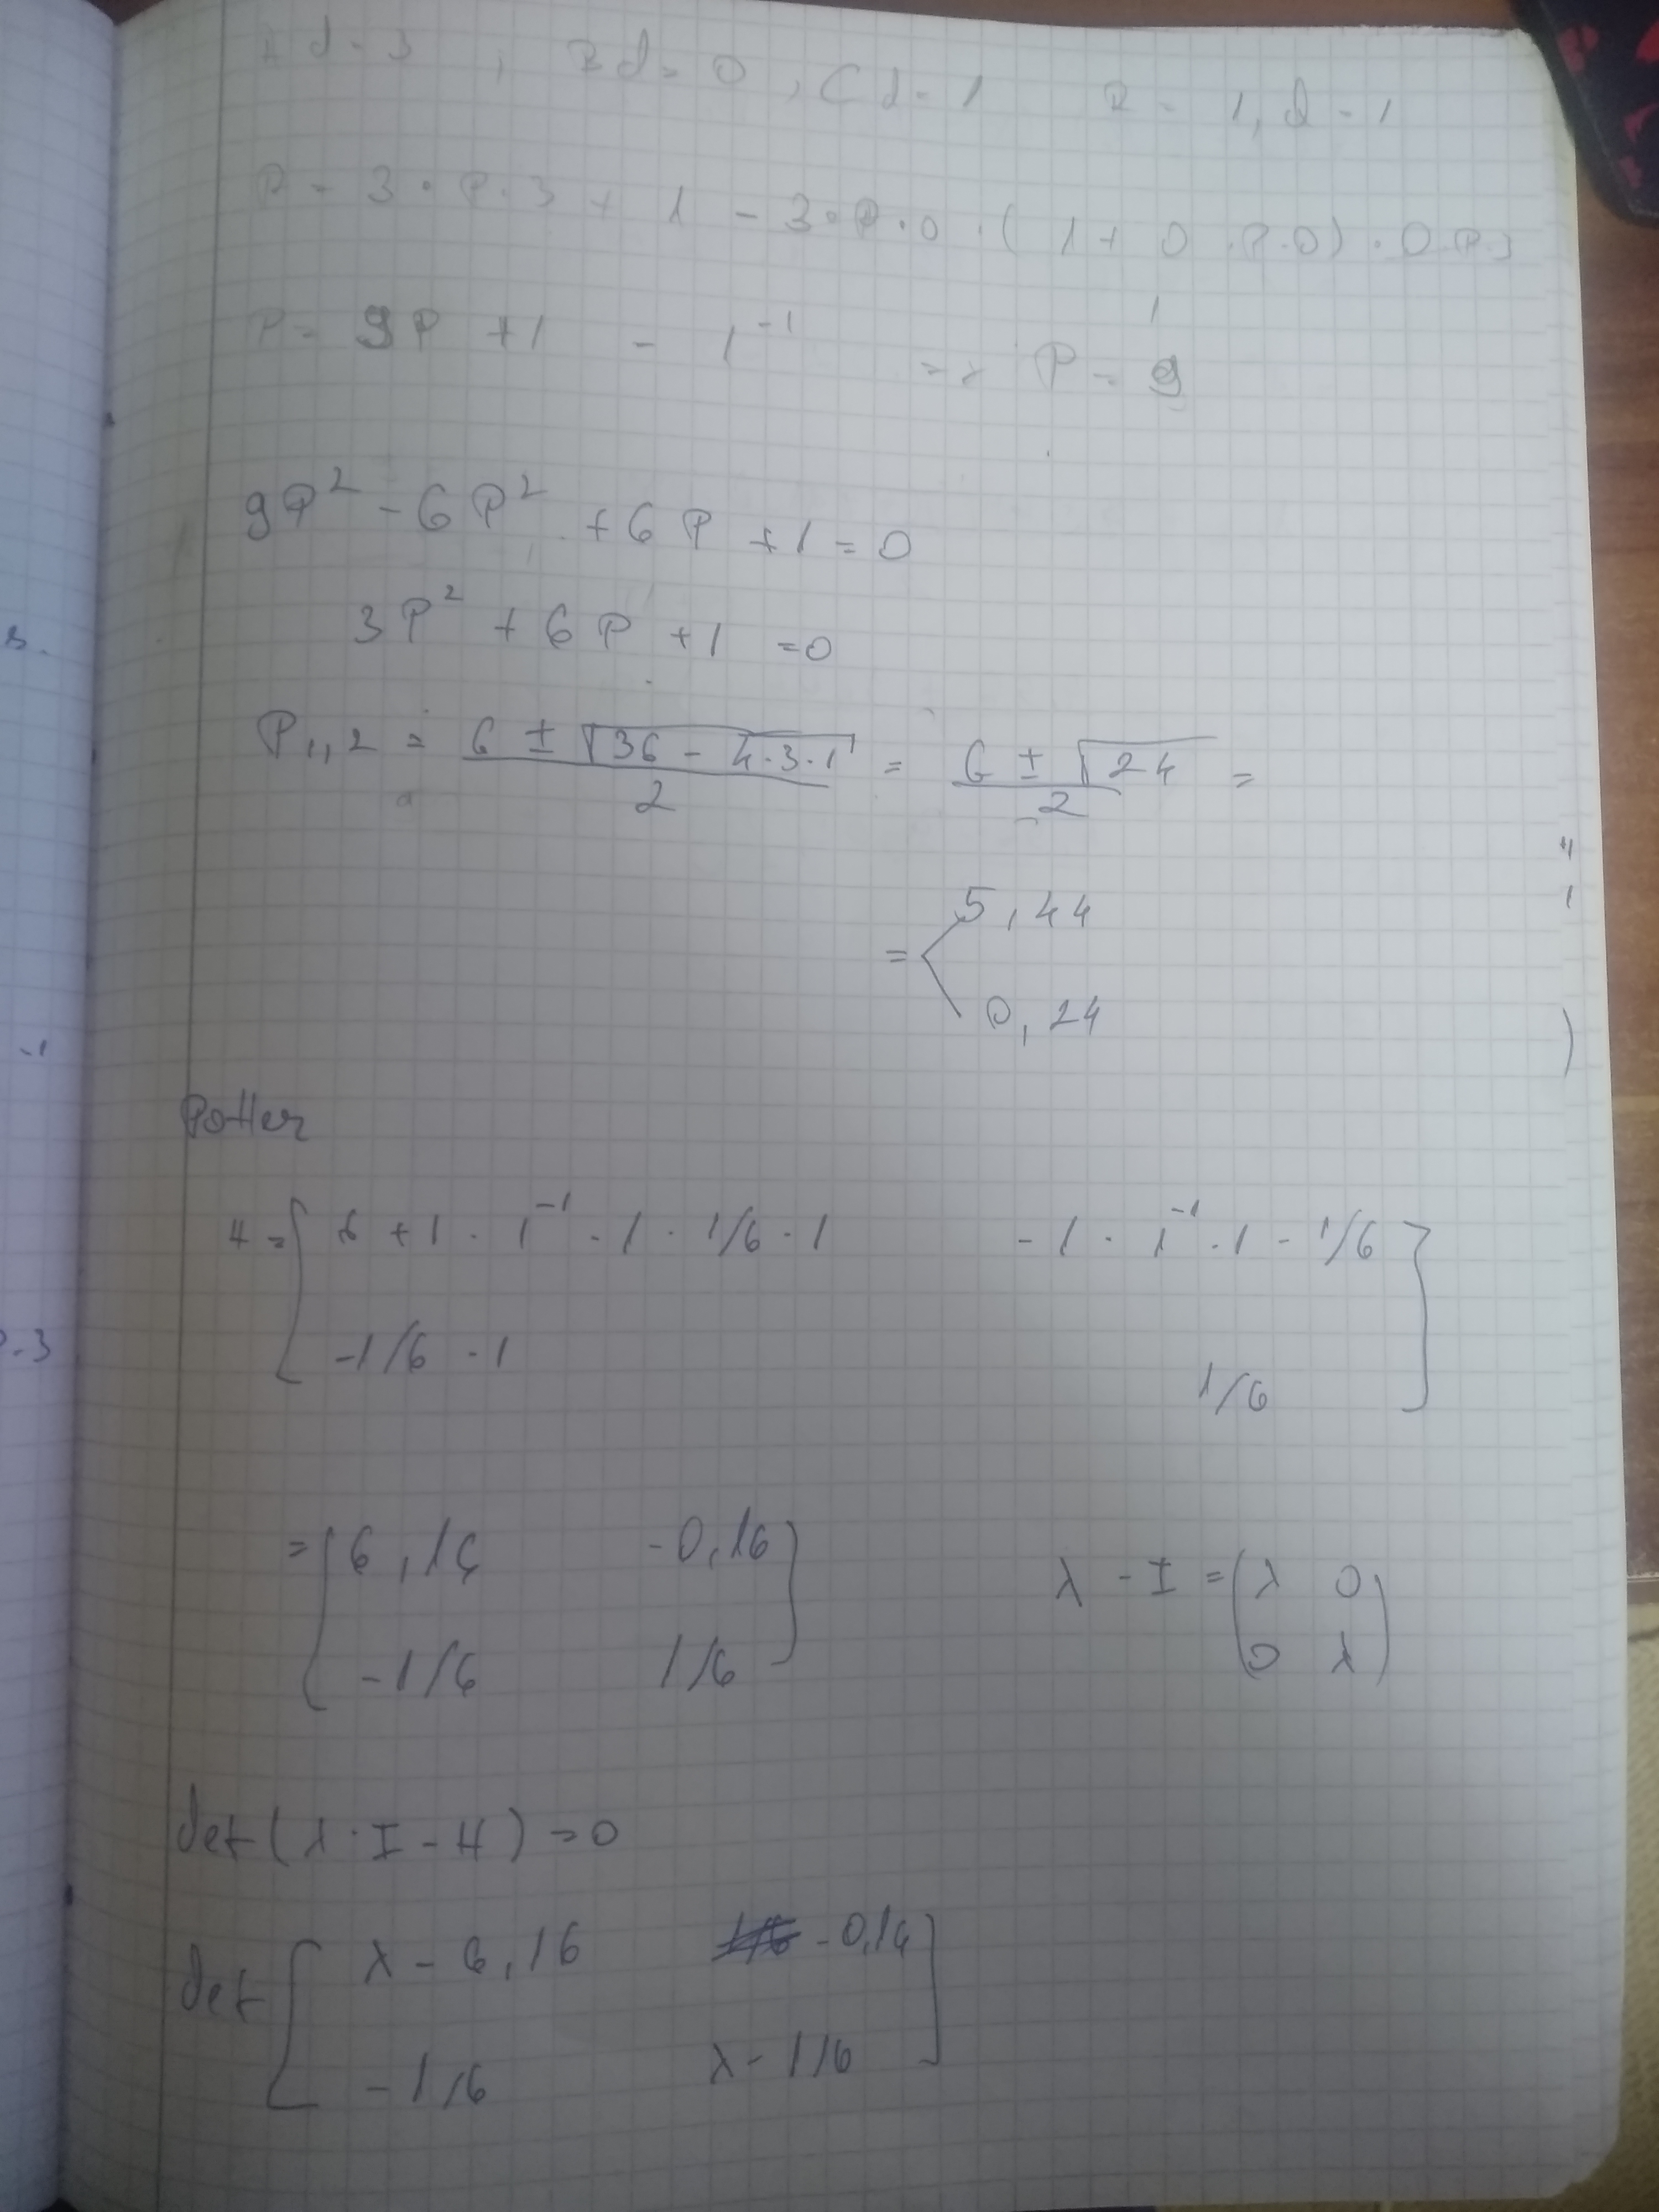 Ad = 3 , Bd = 0 , Cd = 1 R = 1, Q = 1
P = 3 · P · 3 + 1 - 3 · P · 0 · ( 1 + 0 · P · 0 ) · 0 · P · 3
P = 9P + 1 - 1^-1 => P = 1/9
9P^2 - 6P^2 + 6P + 1 = 0
3P^2 + 6P + 1 = 0
P1,2 = (6 ± √(36 - 4·3·1))/2 = (6 ± √24)/2 =
= 5,44
0,24
Potter
H = [ 6 + 1 · 1^-1 · 1 · 1/6 · 1 - 1 · 1^-1 · 1 · 1/6
-1/6 · 1 1/6 ]
= [ 6,16 -0,16
-1/6 1/6 ]
λ · I = ( λ 0
0 λ )
det(λ · I - H) = 0
det [ λ - 6,16 -0,16
-1/6 λ - 1/6 ]
-1
·3